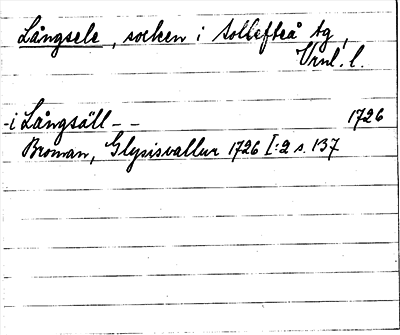 Långsele, socken i Sollefteå tg,
Vrnl. l.
-i Långsäll - - 1726
Broman, Glysisvallur 1726 I:2 s. 137